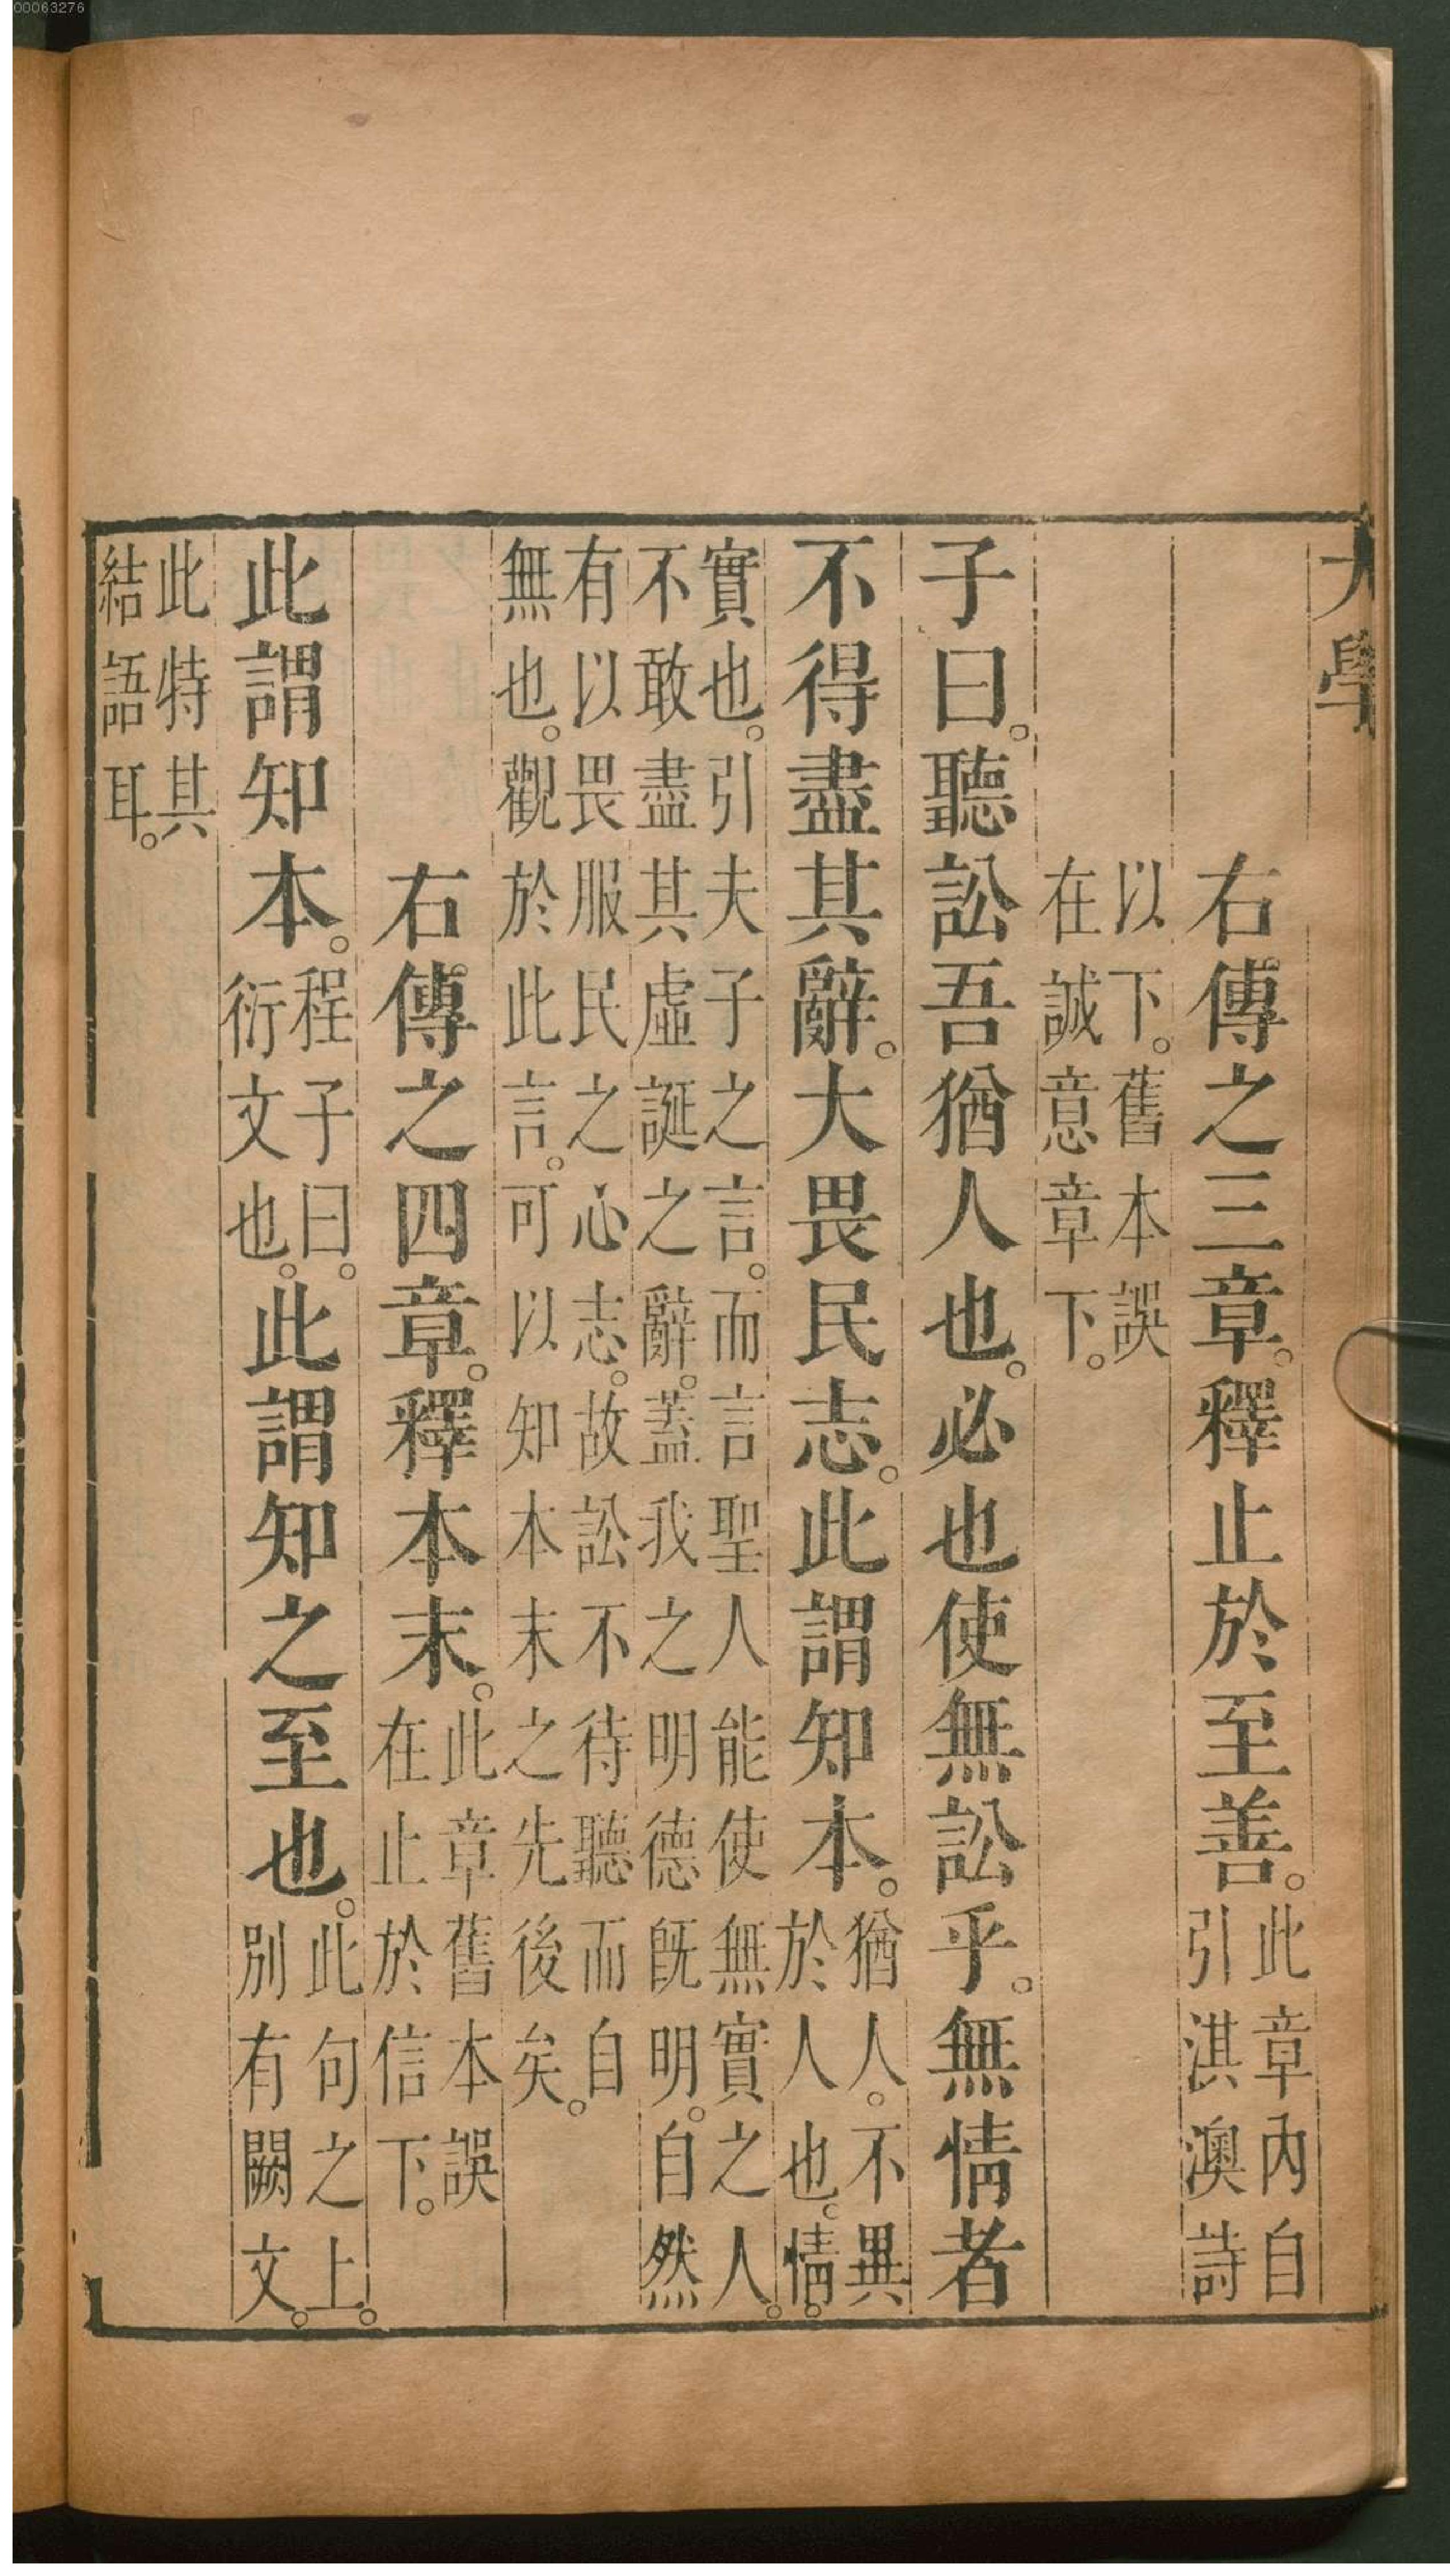 00063276
大學
右傳之三章。釋止於至善。此章內自
引淇澳詩
以下。舊本誤
在誠意章下。
子曰。聽訟吾猶人也。必也使無訟乎。無情者
不得盡其辭。大畏民志。此謂知本。猶人。不異
於人也。情。
實也。引夫子之言。而言聖人能使無實之人。
不敢盡其虛誕之辭。蓋我之明德旣明。自然
有以畏服民之心志。故訟不待聽而自
無也。觀於此言。可以知本末之先後矣。
右傳之四章。釋本末。此章舊本誤
在止於信下。
此謂知本。程子曰。
衍文也。
此謂知之至也。此句之上。
別有闕文。
此特其
結語耳。